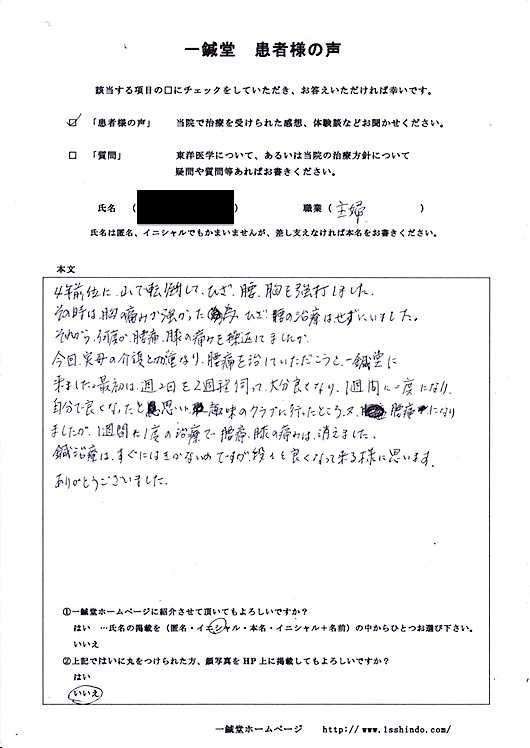 一鍼堂 患者様の声
該当する項目の□にチェックをしていただき、お答えいただければ幸いです。
☑ 「患者様の声」 当院で治療を受けられた感想、体験談などお聞かせください。
□ 「質問」 東洋医学について、あるいは当院の治療方針について
疑問や質問等あればお書きください。
氏名 ( ) 職業 ( 主婦 )
氏名は匿名、イニシャルでもかまいませんが、差し支えなければ本名をお書きください。
本文
4年前位に、山で転倒して、ひざ、腰、胸を強打しました。
その時は、胸の痛みが強かった為、ひざ、腰の治療はせずにいました。
それから、何度か、腰痛、膝の痛みを繰返してましたが、
今回、実母の介護と力重なり、腰痛を治していただこうと、一鍼堂に
来ました。最初は、週2回を2週程伺って、大分良くなり、1週間に一度になり、
自分で良くなったと思い、趣味のクラブに行ったところ、又、腰痛になり
ましたが、1週間に1度の治療で腰痛、膝の痛みは、消えました。
鍼治療は、すぐにはきかないのですが、段々と良くなって来る様に思います。
ありがとうございました。
①一鍼堂ホームページに紹介させて頂いてもよろしいですか？
はい …氏名の掲載を（匿名・イニシャル・本名・イニシャル＋名前）の中からひとつお選び下さい。
いいえ
②上記ではいに丸をつけられた方、顔写真をHP上に掲載してもよろしいですか？
はい
いいえ
一鍼堂ホームページ http://www.1sshindo.com/